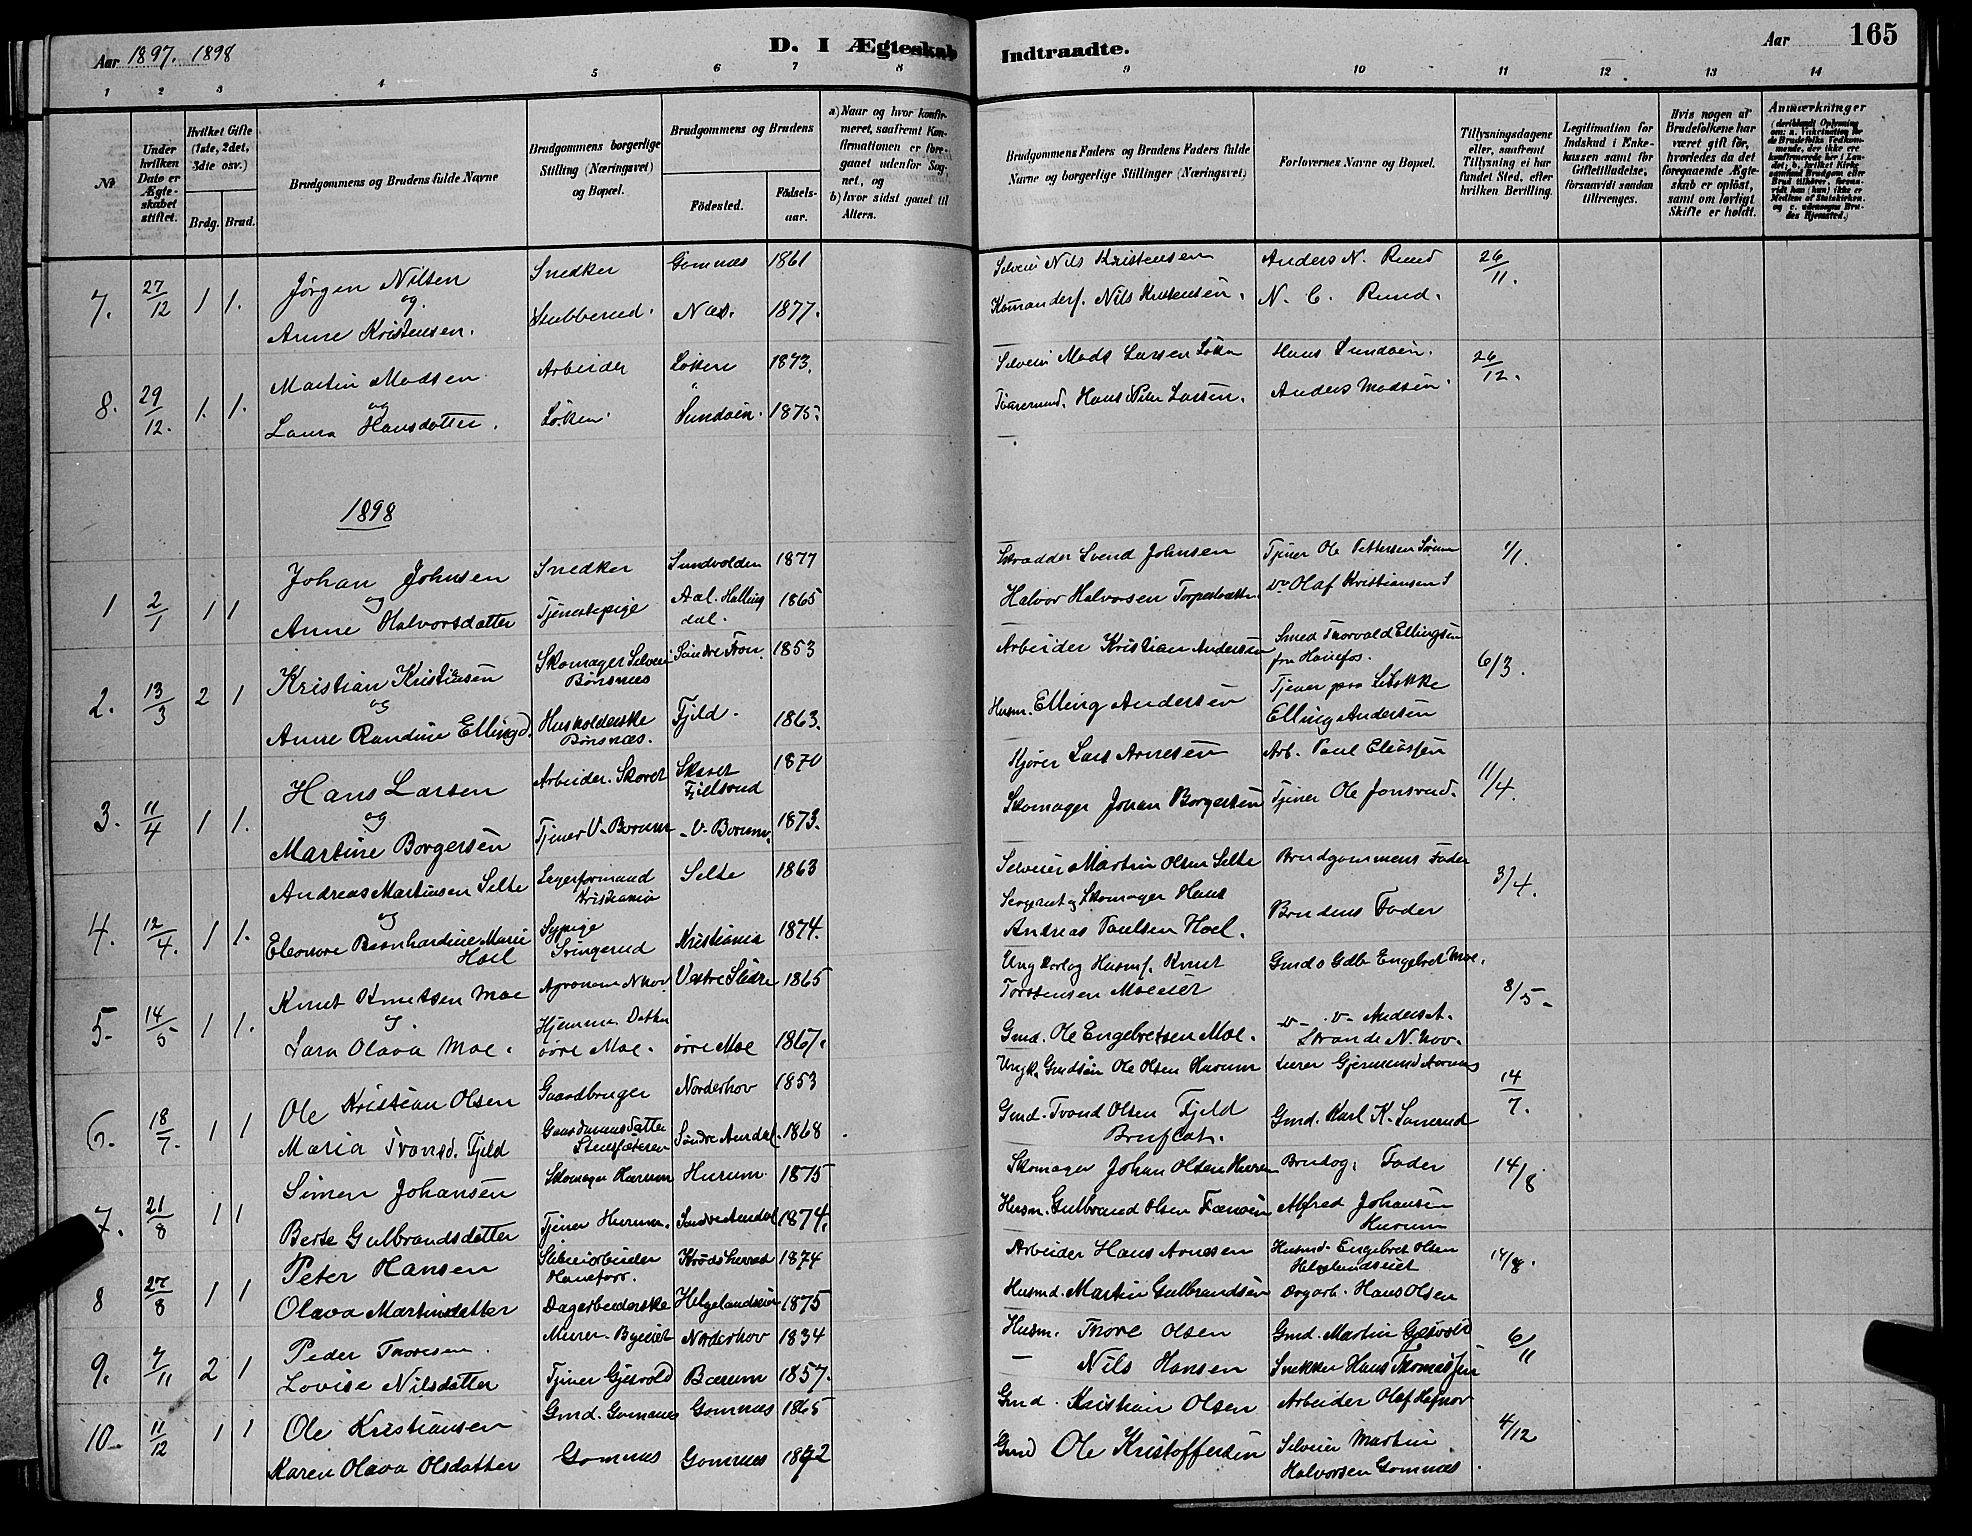 Aar 1897. 1898
D. I Ægteskab Indtraadte.
Aar 165
1 2 3 4 5 6 7 8 9 10 11 12 13 14
№
Under hvilken Dato er Ægteskabet stiftet.
Hvilket Gifte (1ste, 2det, 3die osv.)
Brdg. Brud.
Brudgommens og Brudens fulde Navne
Brudgommens borgerlige Stilling (Næringsvei) og Bopæl.
Brudgommens og Brudens
Fødested.
Fødselsaar.
a) Naar og hvor konfirmeret, saafremt Konfirmationen er foregaaet udenfor Sognet, og
b) hvor sidst gaaet til Alters.
Brudgommens Faders og Brudens Faders fulde Navne og borgerlige Stillinger (Næringsvei)
Forlovernes Navne og Bopæl.
Tillysningsdagene eller, saafremt Tillysning ei har fundet Sted, efter hvilken Bevilling.
Legitimation for Indskud i Enkekassen samt for Giftetilladelse, forsaavidt saadan tiltrænges.
Hvis nogen af Brudefolkene har været gift før, hvorledes da det foregaaende Ægteskab er opløst, samt om lovligt Skifte er holdt.
Anmærkninger
7. 27/12 1 1. Jørgen Nilsen Snedker Gomnæs 1861 Selveier Nils Kristensen Anders N. Rund 26/11.
og
Anne Kristensen. Stubberud. Næs. 1877. Nils Kristensen. N. C. Rund.
8. 29/12. 1. 1. Martin Madsen Arbeider Løken 1873. Selveier Mads Larsen Løken Hans Sundøen. 26/12.
og
Laura Hansdatter. Løken Sundøen. 1875. Hans Peter Larsen. Anders Madsen.
1898
1 2/1 1 1 Johan Johnsen Snedker Sundvolden 1877 Skrædder Svend Johnsen Tjener Ole Pettersen 1/1.
og
Anne Halvorsdatter Tjenestepige Aal. Hallingdal. 1865 Halvor Halvorsen Olaf Kristiansen
2. 13/3 2 1 Kristian Kristiansen Skomager Selveier Bønsnæs Søndre Fron. 1853 Arbeider Kristian Andersen Smed Thorvald Ellingsen fra Hønefos. 6/3.
og
Anne Randine Ellingd. Husholderske Bønsnæs. Fjeld. 1863. Husm. Elling Andersen Tjener paa Elling Andersen
3. 11/4 1 1. Hans Larsen Arbeider. Skoret Skoret Fjelsrud 1870 Kjører Lars Arnesen Arb. Paul Eliassen 11/4.
og
Martine Borgersen Tjener V. Borum V. Borum. 1873. Skomager Johan Borgersen Tjener Ole Jonsrud.
4. 12/4. 1 1. Andreas Martinsen Selte Lagerformand Kristiania Selte 1863 Selveier Martin Olsen Selte Brudgommens Fader 3/4.
og
Eleonore Bernhardine Marie Hoel Sypige Svingerud Kristiania 1874. Sergeant og Skomager Hans Andreas Paulsen Hoel. Brudens Fader
5. 14/5 1 1. Knut Knutsen Moe Agronom N.hov Vestre Slidre 1865 Ungkarl og Husmf. Knut Torstensen Moeeier Gmd o Gdb Engebret Moe. 8/5.
og.
Sara Olava Moe. Hjemme Datter øvre Moe. øvre Moe 1867. Gmd. Ole Engebretsen Moe. Anders A. Strande N.hov.
6. 18/7. 1 1 Ole Kristian Olsen Gaardbruger Norderhov 1853 Ungk. Gmdsøn Ole Olsen Hurum Lærer Gjermund 14/7.
Maria Tronsd. Fjeld Gaardmansdatter Søndre Aurdal. 1868. Gmd. Trond Olsen Fjeld Bruflat. Gmd. Karl K.
7. 21/8 1 1 Simen Johansen Skomager Hurum Hurum 1875 Skomager Johan Olsen Hurum Brudog: Fader 14/8
Berte Gulbrandsdatter Tjener Hurum. Søndre Aurdal 1874. Husm. Gulbrand Olsen Alfred Johansen Hurum
8 27/8 1 1 Peter Hansen Sliberiarbeider Hønefoss. Krødsherred 1874 Arbeider Hans Arnesen Husmd. Engebret Olsen Helgelandseiet 14/8.
Olava Martinsdatter Dagarbeiderske Helgelandseie 1875 Husmd. Martin Gulbrandsen Dagarb. Hans Olsen
9. 7/11 2 1 Peder Thoresen. Murer. Norderhov 1834 Husm. Thore Olsen Gmd. Martin Gjesvold 6/11
Lovise Nilsdatter Tjener Gjesvold Bærum 1857. — Nils Hansen Snekker Hans Thomassen
10. 11/12 1 1 Ole Kristiansen Gmd. Gomnæs Gomnæs 1865 Gmd. Kristian Olsen Arbeider Olaf 4/12
Karen Olava Olsdatter Gomnæs Gomnæs 1872 Gmd Ole Kristoffersen Selveier Martin Halvorsen Gomnæs.